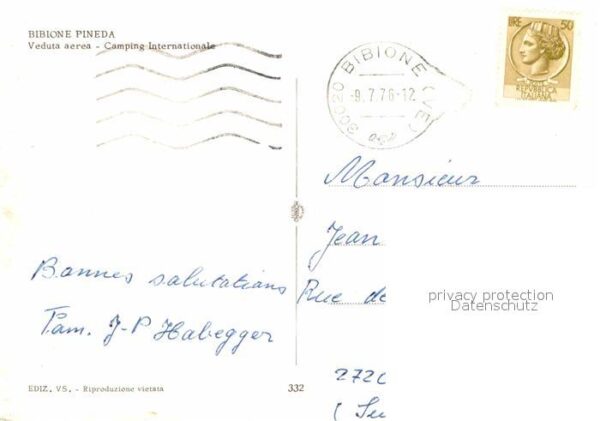 BIBIONE PINEDA
Veduta aerea - Camping Internationale
30020 BIBIONE (VE)
-9.7.76-12
LIRE 50
REPUBBLICA
ITALIANA
Monsieur
Jean
Rue de
privacy protection
Datenschutz
Bonnes salutations
Fam. J-P Habegger
EDIZ. VS. - Riproduzione vietata
332